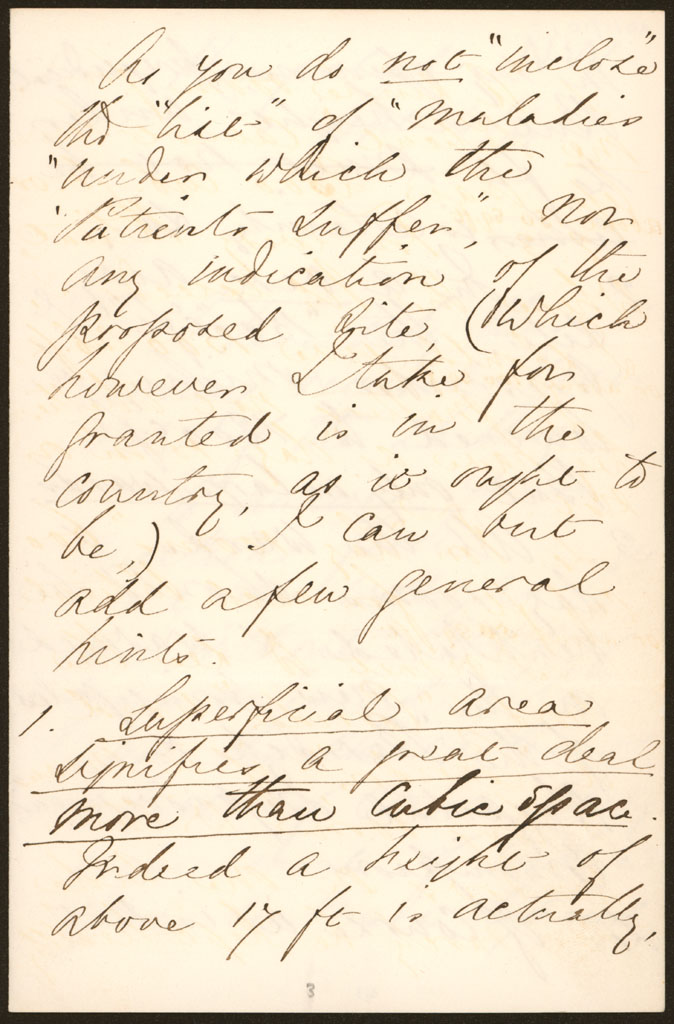 As you do not "inclose"
the "list" of "maladies
"under which the
"Patients suffer", nor
any indication of the
proposed site, (which
however I take for
granted is in the
country, as it ought to
be,) I can but
add a few general
hints.
1. Superficial area
signifies a great deal
more than cubic space.
Indeed a height of
above 17 ft is actually,
3